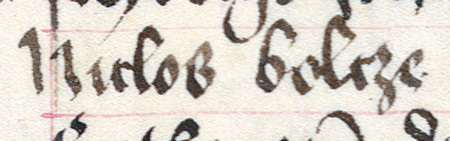 Niclos belcze